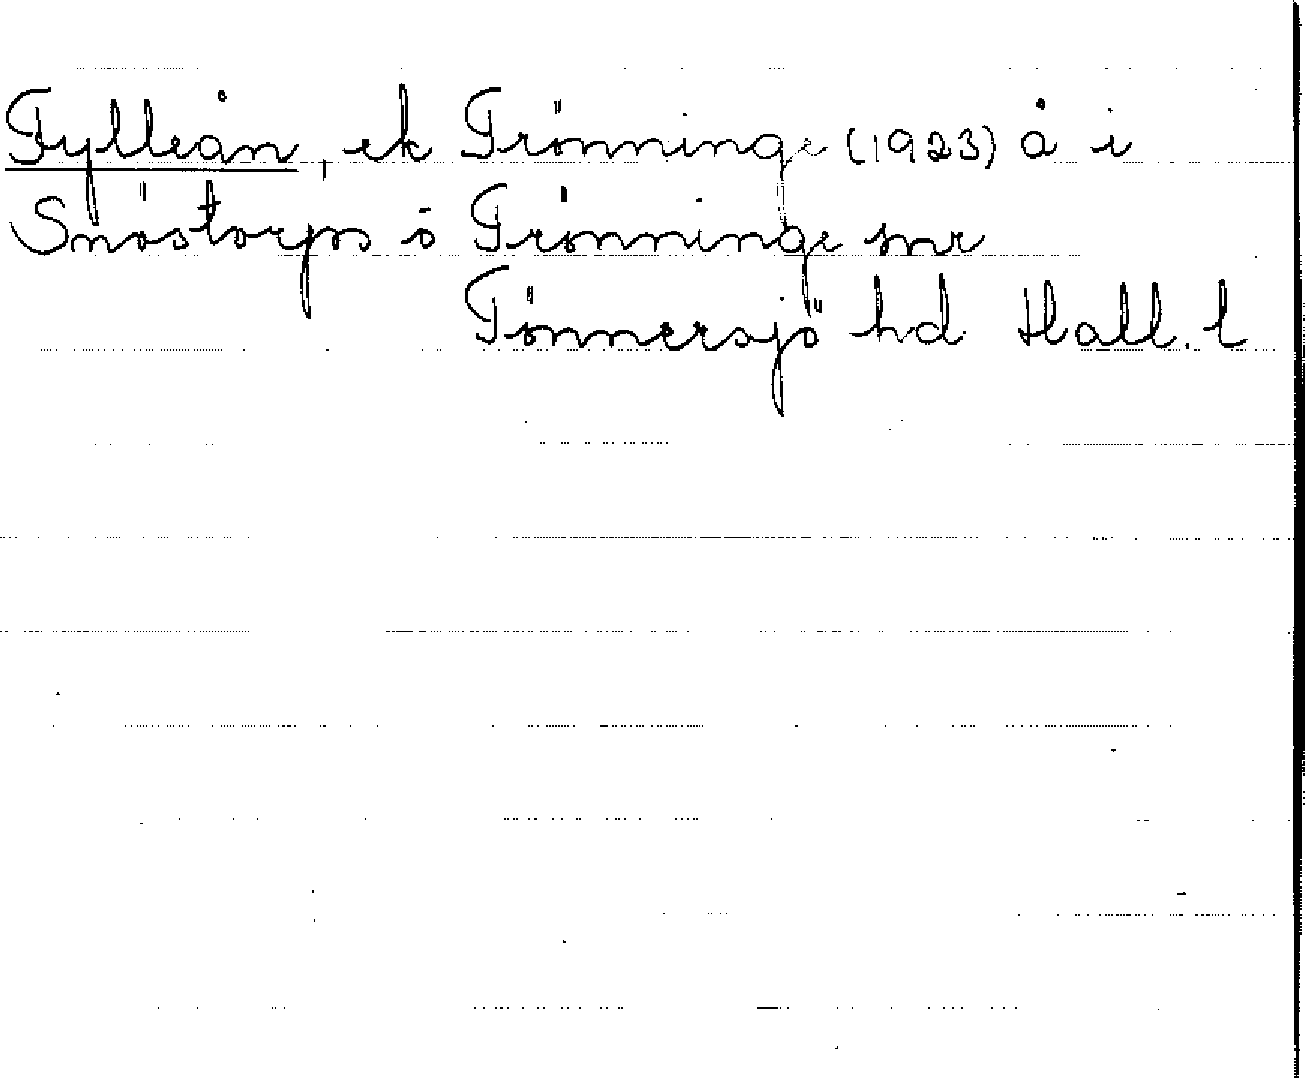 Fylleån, ek Trönninge (1923) å i
Snöstorps o Trönninge snr
Tönnersjö hd Hall. l